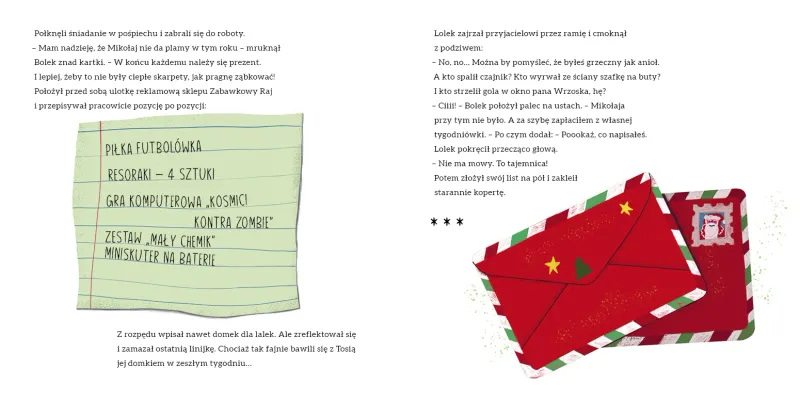 Połknęli śniadanie w pośpiechu i zabrali się do roboty.
– Mam nadzieję, że Mikołaj nie da plamy w tym roku – mruknął
Bolek znad kartki. – W końcu każdemu należy się prezent.
I lepiej, żeby to nie były ciepłe skarpety, jak pragnę ząbkować!
Położył przed sobą ulotkę reklamową sklepu Zabawkowy Raj
i przepisywał pracowicie pozycję po pozycji:
PIŁKA FUTBOLÓWKA
RESORAKI – 4 SZTUKI
GRA KOMPUTEROWA „KOSMICI
KONTRA ZOMBIE”
ZESTAW „MAŁY CHEMIK”
MINISKUTER NA BATERIE
Z rozpędu wpisał nawet domek dla lalek. Ale zreflektował się
i zamazał ostatnią linijkę. Chociaż tak fajnie bawili się z Tosią
jej domkiem w zeszłym tygodniu...
Lolek zajrzał przyjacielowi przez ramię i cmoknął
z podziwem:
– No, no... Można by pomyśleć, że byłeś grzeczny jak anioł.
A kto spalił czajnik? Kto wyrwał ze ściany szafkę na buty?
I kto strzelił gola w okno pana Wrzoska, hę?
– Ciii! – Bolek położył palec na ustach. – Mikołaja
przy tym nie było. A za szybę zapłaciłem z własnej
tygodniówki. – Po czym dodał: – Poookaż, co napisałeś.
Lolek pokręcił przecząco głową.
– Nie ma mowy. To tajemnica!
Potem złożył swój list na pół i zakleił
starannie kopertę.
* * *